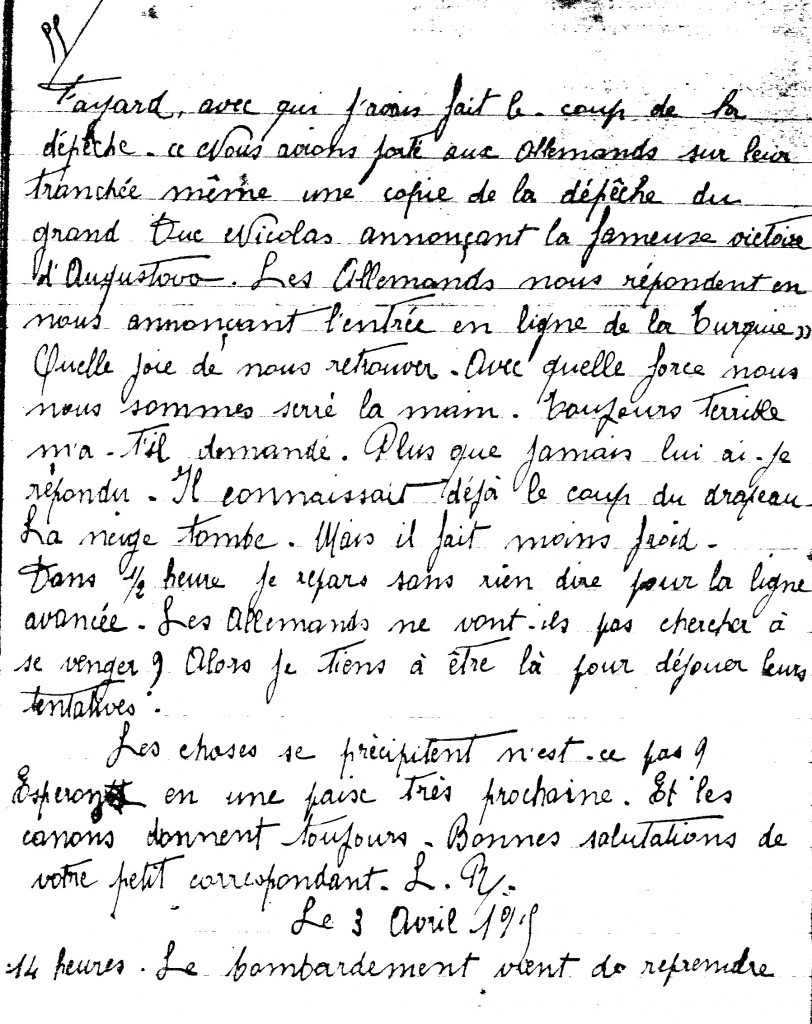 Fayard, avec qui j'avais fait le coup de la
dépêche. « Nous avions porté aux Allemands sur leur
tranchée même une copie de la dépêche du
grand Duc Nicolas annonçant la fameuse victoire
d'Augustovo. Les Allemands nous répondent en
nous annonçant l'entrée en ligne de la Turquie »
Quelle joie de nous retrouver. Avec quelle force nous
nous sommes serré la main. Toujours terrible
m'a-t'il demandé. Plus que jamais lui ai-je
répondu. Il connaissait déjà le coup du drapeau.
La neige tombe. Mais il fait moins froid.
Dans 1/2 heure je repars sans rien dire pour la ligne
avancée. Les Allemands ne vont-ils pas chercher à
se venger ? Alors je tiens à être là pour déjouer leurs
tentatives.
Les choses se précipitent n'est-ce pas ?
en une paix très prochaine. Et les
canons donnent toujours. Bonnes salutations de
votre petit correspondant. L. R.
Le 3 Avril 1915
14 heures. Le bombardement vient de reprendre